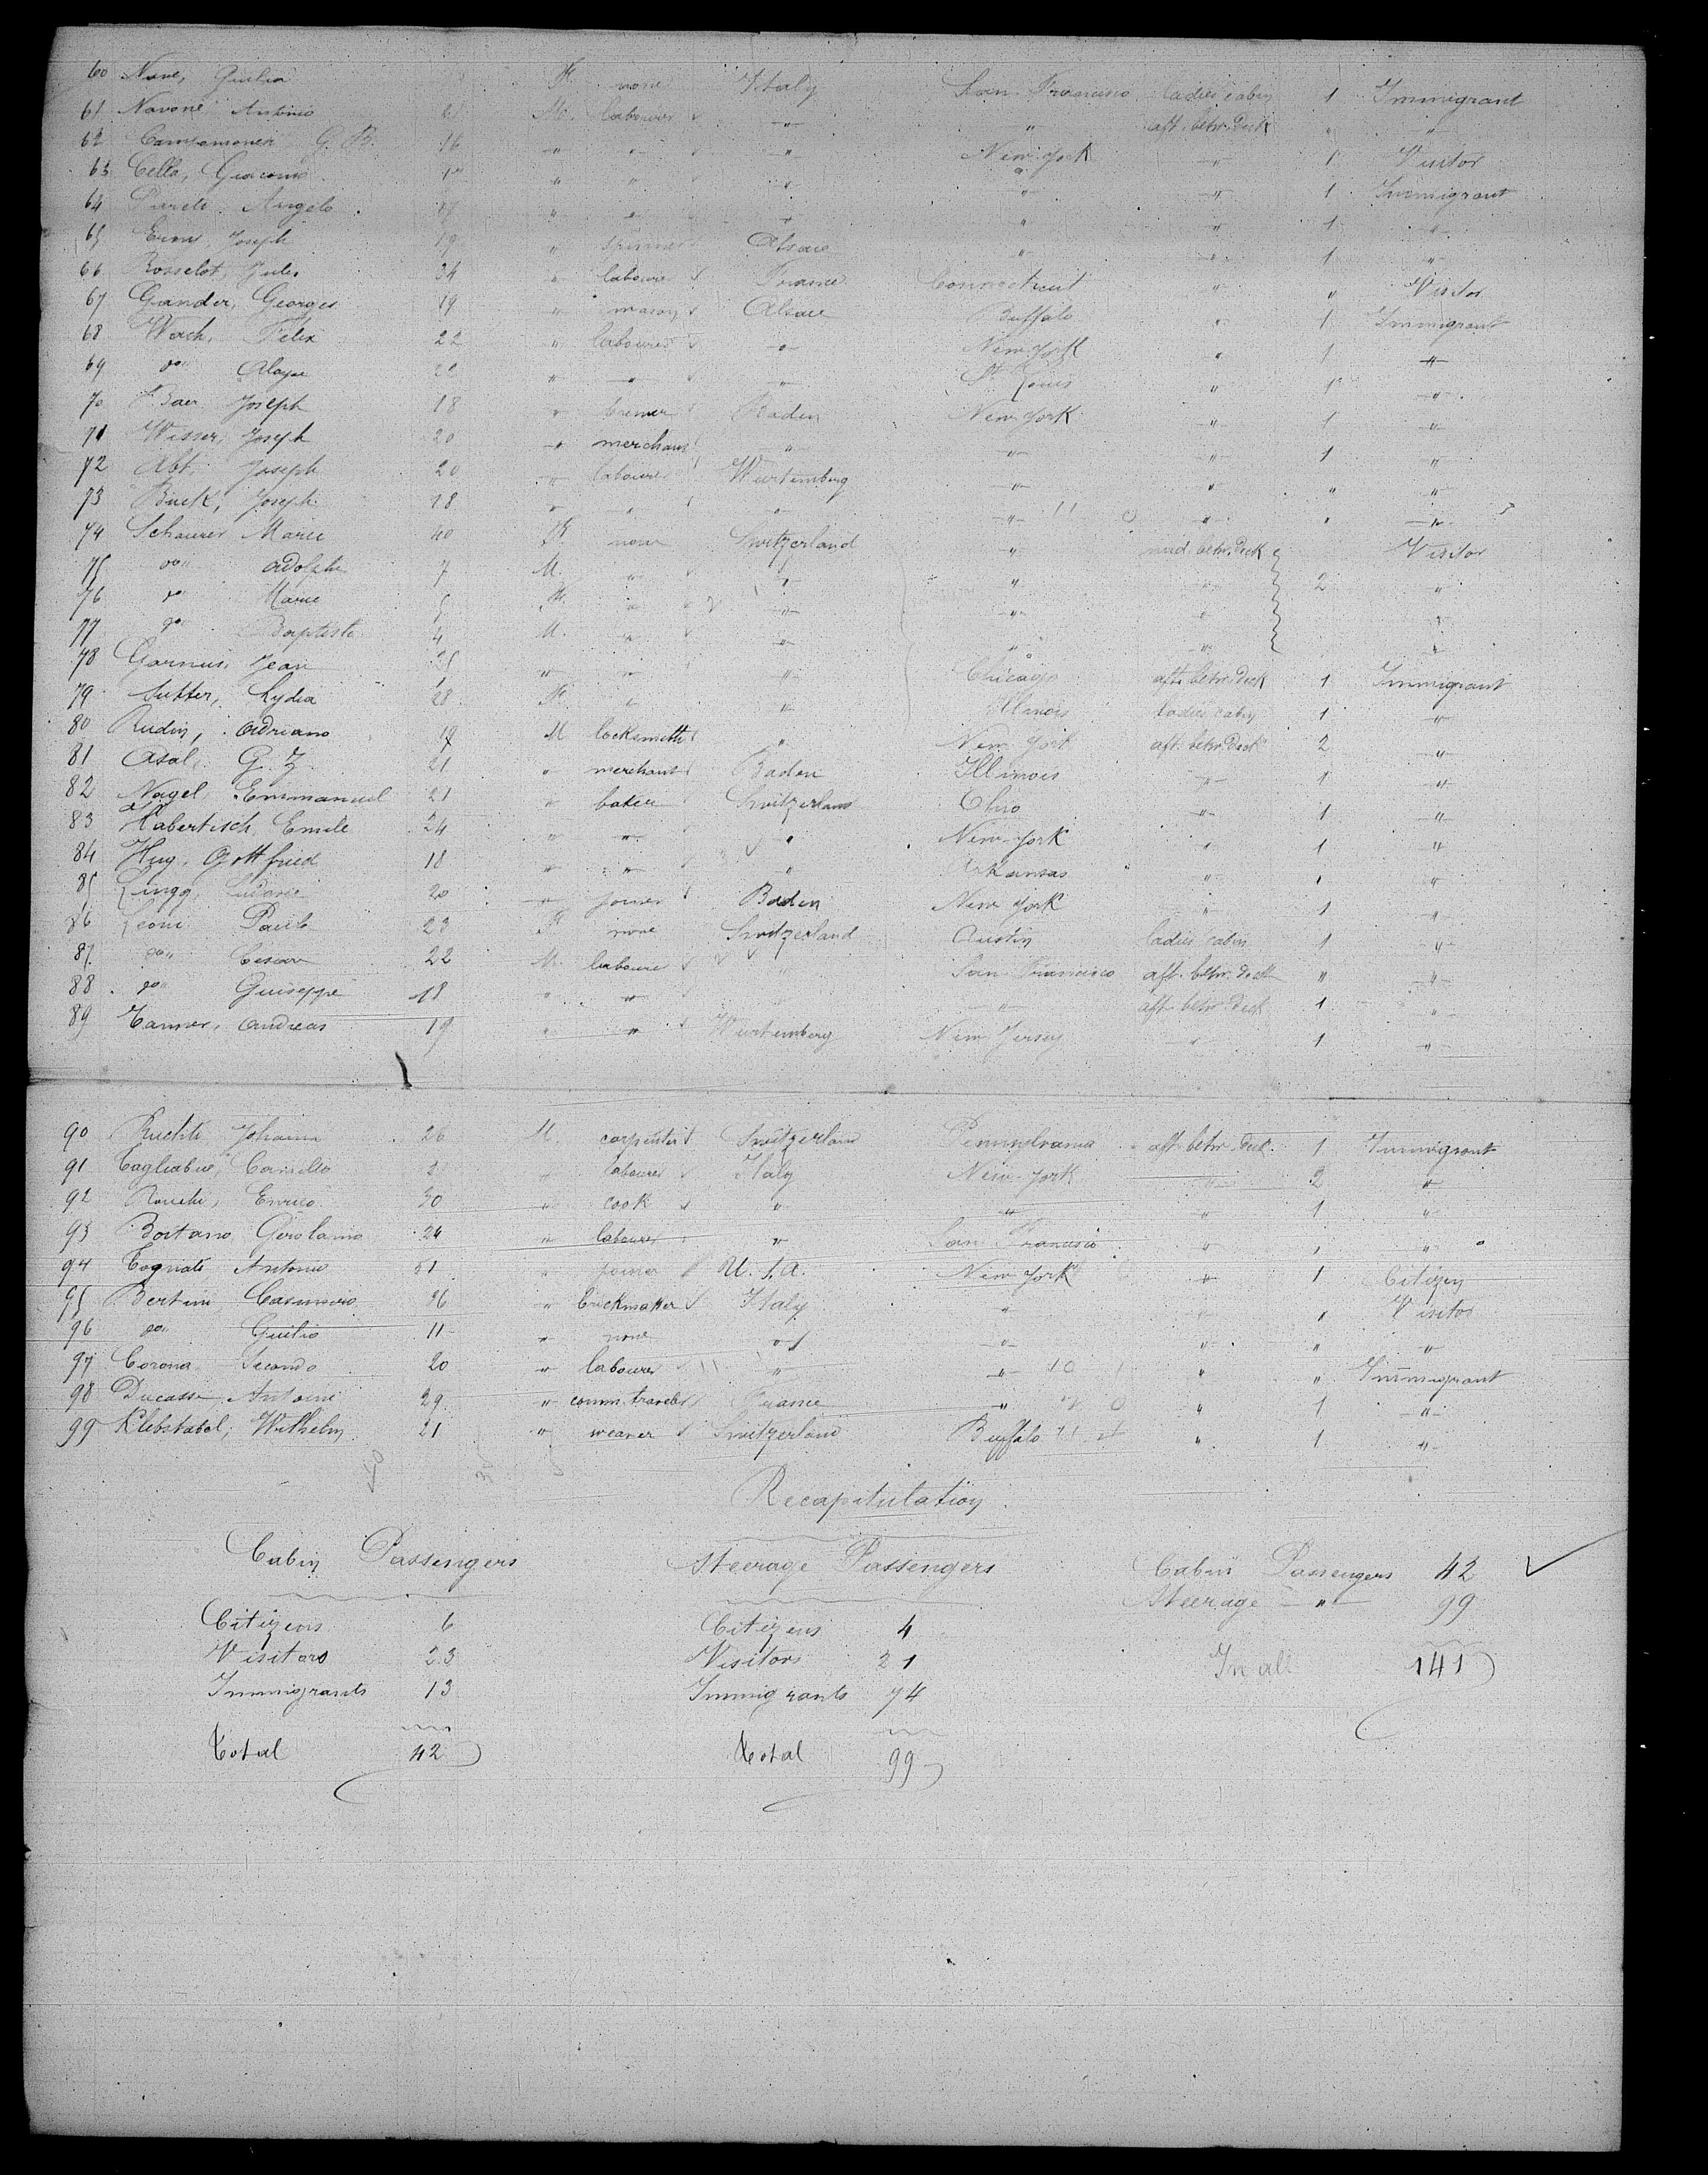 60 Nave, Giulia F. none Italy San Francisco ladies cabin 1 Immigrant
61 Navone Antonio M. labourer " " aft. betw. Deck " "
62 G. B. 16 " " " New-York " 1 Visitor
63 Cella, Giacomo " " " " " 1 Immigrant
64 Angelo " " " " " 1 "
65 Joseph 19 " spinner Alsace " " 1 "
66 Rosselot, Jules 34 " labourer France Connecticut " " Visitor
67 Gander, Georges 19 " mason Alsace Buffalo " 1 Immigrant
68 Wach, Felix 22 " labourer " New-York " 1 "
69 do" 22 " " " St Louis " 1 "
70 Baer Joseph 18 " brewer Baden New-York " 1 "
71 Wisser, Joseph 20 " merchant " " " 1 "
72 Abt, Joseph 20 " labourer Wurtemberg " " " "
73 Buck, Joseph 18 " " " " " " "
74 Schaurer Marie 40 F. none Switzerland " mid. betw. Deck Visitor
75 do" Adolphe 7 M. " " " " 2 "
76 do" Marie 5 F. " " " " "
77 do" Baptiste 4 M. " " " " "
78 Jean " " " Chicago aft. betw. Deck 1 Immigrant
79 Sutter, Lydia 28 F. " " Illinois ladies cabin 1 "
80 Rudin, Adriano 19 M locksmith " New York aft. betw. Deck 2 "
81 Asal, G. J. 21 " merchant Baden Illinois " 1 "
82 Nagel, Emmanuel 21 " baker Switzerland Ohio " 1 "
83 Habertisch, Emile 24 " " " New-York " 1 "
84 Hug, Gottfried 18 " " " Arkansas " 1 "
85 Lingg, 20 " joiner Baden New York " 1 "
86 Leoni Paula 23 F. none Switzerland Austin ladies cabin 1 "
87 do" Cesare 22 M. labourer " San Francisco aft. betw. deck " "
88 do" Guiseppe 18 " " " aft. betw. Deck 1 "
89 Tanner, Andreas 19 " " Wurtemberg New Jersey " 1 "
90 Johann 26 M. carpenter Switzerland Pennsylvania aft betw. Deck 1 Immigrant
91 Tagliabue, Camillo " labourer Italy New-York " 2 "
92 Enrico 30 " cook " " " 1 "
93 Boitano Girolamo 24 " labourer " San Francisco " 1 "
94 Tognati Antonio 51 " joiner U. S. A. New York " 1 Citizen
95 Bertini Casimiro 36 " brickmaker Italy " " 1 Visitor
96 do" Guilio 11 " none " " " " "
97 Corona Secondo 20 " labourer " " " " Immigrant
98 Ducasse, Antoine 29 " comm. traveler France " " 1 "
99 Klebstabel, Wilhelm 21 " weaver Switzerland Buffalo " 1 "
Recapitulation
Cabin Passengers
Citizens 6
Visitors 23
Immigrants 13
Total 42
Steerage Passengers
Citizens 4
Visitors 21
Immigrants 74
Total 99
Cabin Passengers 42
Steerage " 99
In all 141